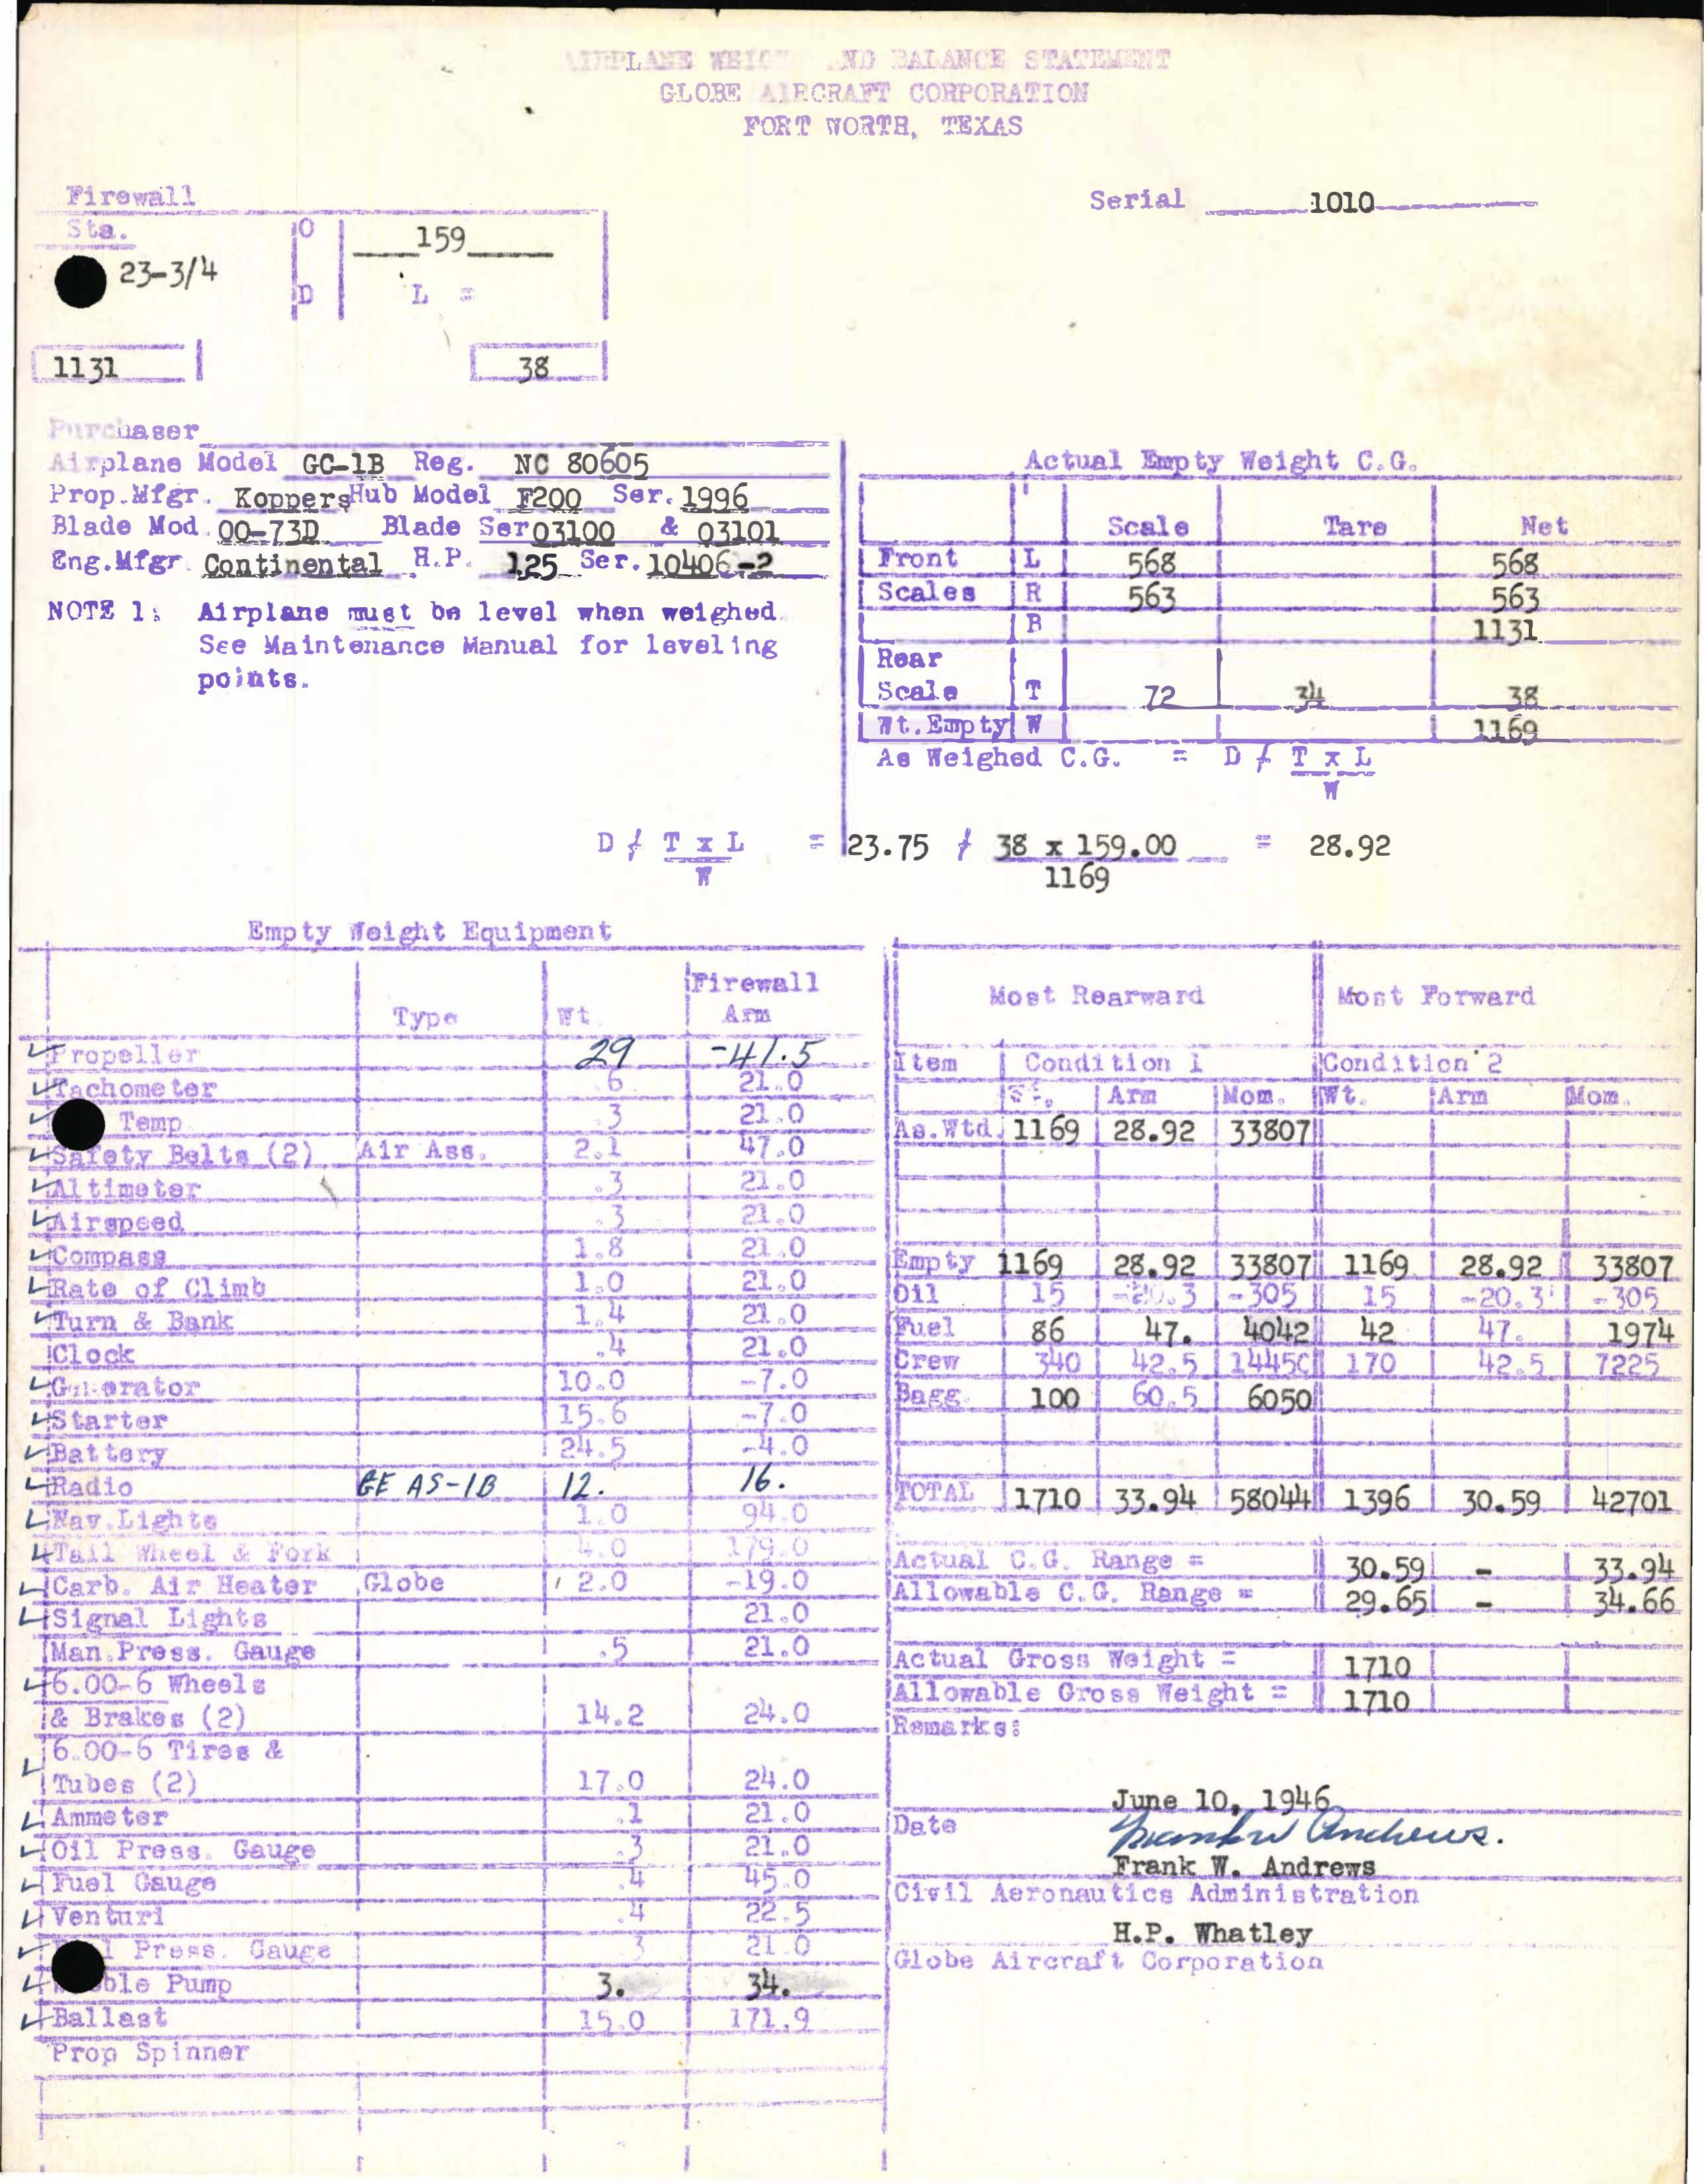 AIRPLANE WEIG ND BALANCE STATEMENT
GLOBE AIRCRAFT CORPORATION
FORT WORTH, TEXAS
Firewall
Serial 1010
Sta. O 159
23-3/4
D L =
1131 38
Purchaser
Airplane Model GC-1B Reg. NC 80605
Prop.Mfgr. Koppers Hub Model F200 Ser. 1996
Blade Mod. 00-73D Blade Ser 03100 & 03101
Eng.Mfgr. Continental H.P. 125 Ser. 10406-2
NOTE 1: Airplane must be level when weighed.
See Maintenance Manual for leveling
points.
Actual Empty Weight C.G.
Scale Tare Net
Front L 568 568
Scales R 563 563
B 1131
Rear
Scale T 72 34 38
Wt.Empty W 1169
As Weighed C.G. = D ⁄ T x L
W
D ⁄ T x L = 23.75 ⁄ 38 x 159.00 = 28.92
W 1169
Empty Weight Equipment
Type Wt. Firewall Arm
Propeller 29 -41.5
Tachometer .6 21.0
Temp .3 21.0
Safety Belts (2) Air Ass. 2.1 47.0
Altimeter .3 21.0
Airspeed .3 21.0
Compass 1.8 21.0
Rate of Climb 1.0 21.0
Turn & Bank 1.4 21.0
Clock .4 21.0
Generator 10.0 -7.0
Starter 15.6 -7.0
Battery 24.5 -4.0
Radio GE AS-1B 12. 16.
Nav.Lights 1.0 94.0
Tail Wheel & Fork 4.0 179.0
Carb. Air Heater Globe 2.0 -19.0
Signal Lights 21.0
Man.Press. Gauge .5 21.0
6.00-6 Wheels
& Brakes (2) 14.2 24.0
6.00-6 Tires &
Tubes (2) 17.0 24.0
Ammeter .1 21.0
Oil Press. Gauge .3 21.0
Fuel Gauge .4 45.0
Venturi .4 22.5
l Press. Gauge .3 21.0
ble Pump 3. 34.
Ballast 15.0 171.9
Prop Spinner
Most Rearward Most Forward
Item Condition 1 Condition 2
Wt. Arm Mom. Wt. Arm Mom.
As.Wtd. 1169 28.92 33807
Empty 1169 28.92 33807 1169 28.92 33807
Oil 15 -20.3 -305 15 -20.3 -305
Fuel 86 47. 4042 42 47. 1974
Crew 340 42.5 14450 170 42.5 7225
Bagg. 100 60.5 6050
TOTAL 1710 33.94 58044 1396 30.59 42701
Actual C.G. Range = 30.59 - 33.94
Allowable C.G. Range = 29.65 - 34.66
Actual Gross Weight = 1710
Allowable Gross Weight = 1710
Remarks:
June 10, 1946
Date
Frank W. Andrews
Civil Aeronautics Administration
H.P. Whatley
Globe Aircraft Corporation